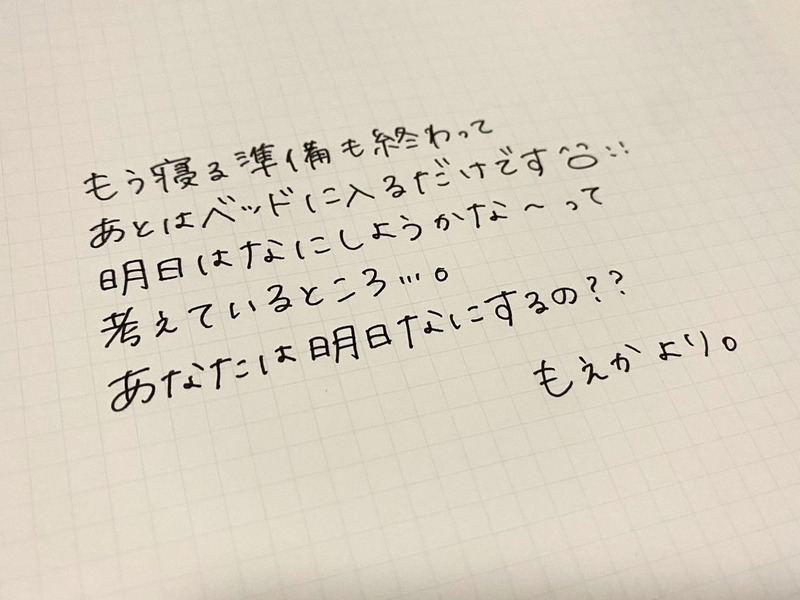 もう寝る準備も終わって
あとはベッドに入るだけです
明日はなにしようかな〜って
考えているところ…。
あなたは明日なにするの??
もえかより。